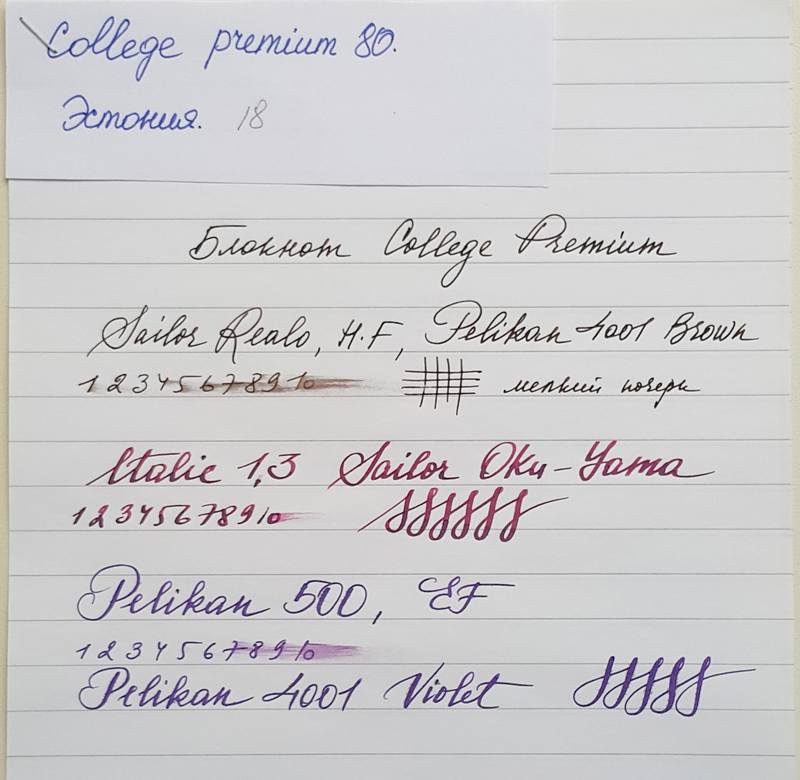 College premium 80.
Эстония. 18
Блокнот College Premium
Sailor Realo, H.F, Pelikan 4001 Brown
1 2 3 4 5 6 7 8 9 10 мелкий почерк
Italic 1,3 Sailor Oku-Yama
1 2 3 4 5 6 7 8 9 10
Pelikan 500, EF
1 2 3 4 5 6 7 8 9 10
Pelikan 4001 Violet